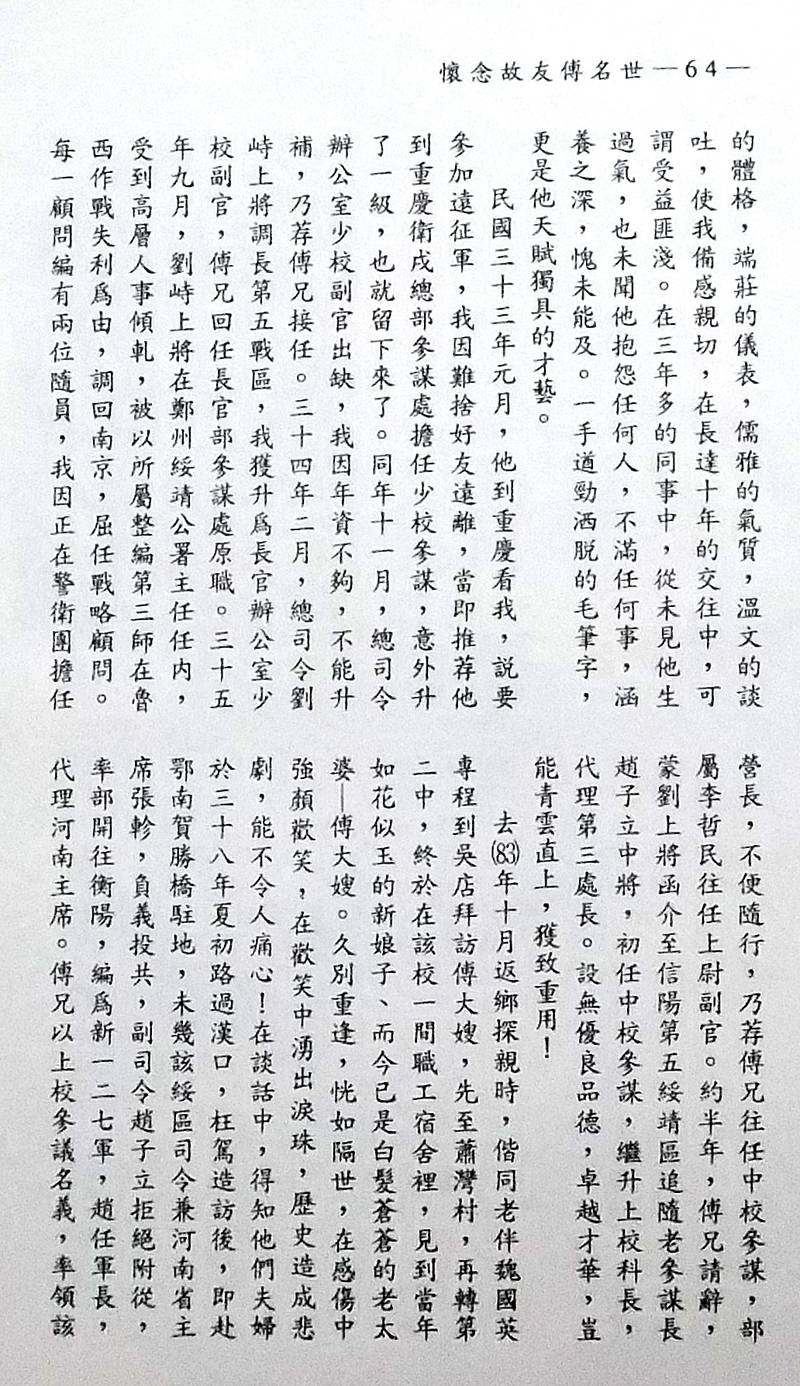 懷念故友傅名世—64—
的體格，端莊的儀表，儒雅的氣質，溫文的談
吐，使我備感親切，在長達十年的交往中，可
謂受益匪淺。在三年多的同事中，從未見他生
過氣，也未聞他抱怨任何人，不滿任何事，涵
養之深，愧未能及。一手遒勁洒脫的毛筆字，
更是他天賦獨具的才藝。
民國三十三年元月，他到重慶看我，說要
參加遠征軍，我因難捨好友遠離，當即推荐他
到重慶衛戍總部參謀處擔任少校參謀，意外升
了一級，也就留下來了。同年十一月，總司令
辦公室少校副官出缺，我因年資不夠，不能升
補，乃荐傅兄接任。三十四年二月，總司令劉
峙上將調長第五戰區，我獲升爲長官辦公室少
校副官，傅兄回任長官部參謀處原職。三十五
年九月，劉峙上將在鄭州綏靖公署主任任內，
受到高層人事傾軋，被以所屬整編第三師在魯
西作戰失利爲由，調回南京，屈任戰略顧問。
每一顧問編有兩位隨員，我因正在警衛團擔任
營長，不便隨行，乃荐傅兄往任中校參謀，部
屬李哲民往任上尉副官。約半年，傅兄請辭，
蒙劉上將函介至信陽第五綏靖區追隨老參謀長
趙子立中將，初任中校參謀，繼升上校科長，
代理第三處長。設無優良品德，卓越才華，豈
能青雲直上，獲致重用！
去(83)年十月返鄉探親時，偕同老伴魏國英
專程到吳店拜訪傅大嫂，先至蕭灣村，再轉第
二中，終於在該校一間職工宿舍裡，見到當年
如花似玉的新娘子、而今已是白髮蒼蒼的老太
婆—傅大嫂。久別重逢，恍如隔世，在感傷中
強顏歡笑，在歡笑中湧出淚珠，歷史造成悲
劇，能不令人痛心！在談話中，得知他們夫婦
於三十八年夏初路過漢口，枉駕造訪後，即赴
鄂南賀勝橋駐地，未幾該綏區司令兼河南省主
席張軫，負義投共，副司令趙子立拒絕附從，
率部開往衡陽，編爲新一二七軍，趙任軍長，
代理河南主席。傅兄以上校參議名義，率領該